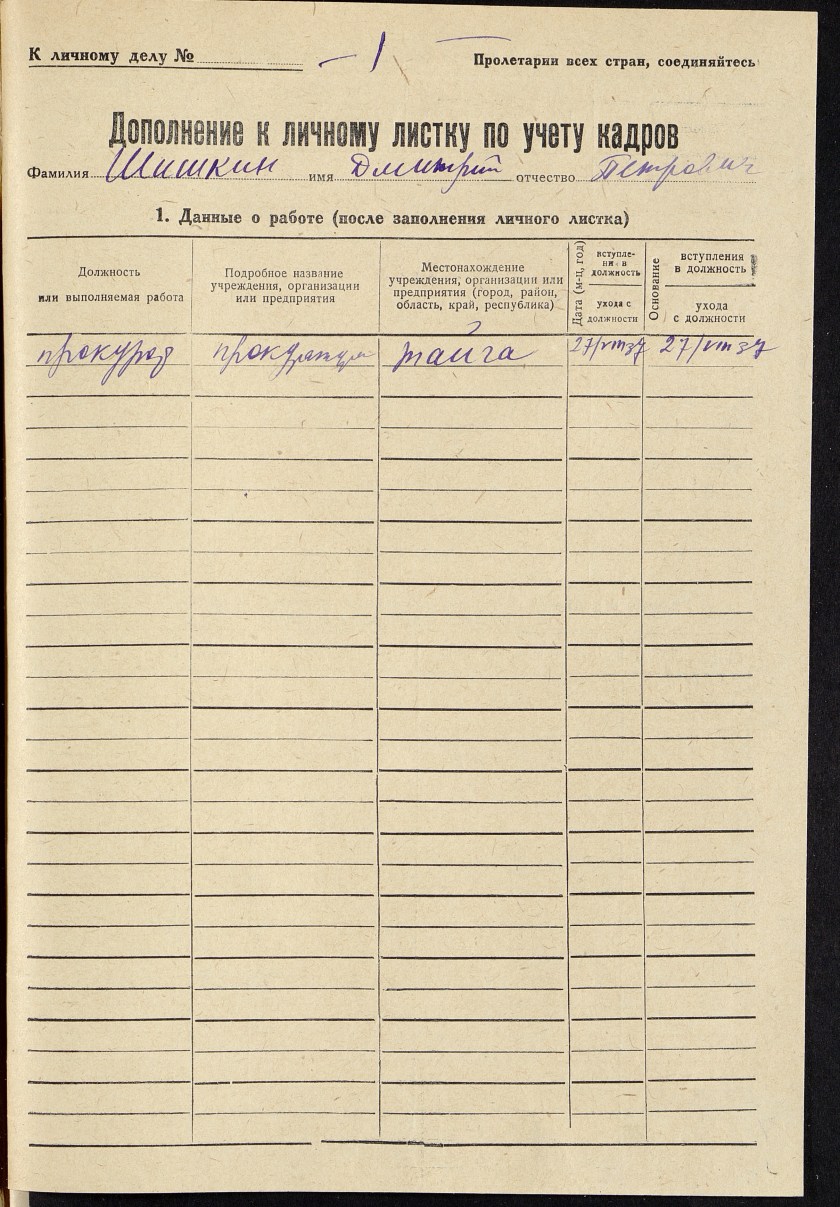 К личному делу № – 1
Пролетарии всех стран, соединяйтесь
Дополнение к личному листку по учету кадров
Фамилия Шишкин имя Дмитрий отчество Петрович
1. Данные о работе (после заполнения личного листка)
Должность
или выполняемая работа
Подробное название
учреждения, организации
или предприятия
Местонахождение
учреждения, организации или
предприятия (город, район,
область, край, республика)
Дата (м-ц, год)
вступле-
ни в
должность
ухода с
должности
Основание
вступления
в должность
ухода
с должности
прокурор прокуратура тайга 27/VIII 37 27/VIII 37